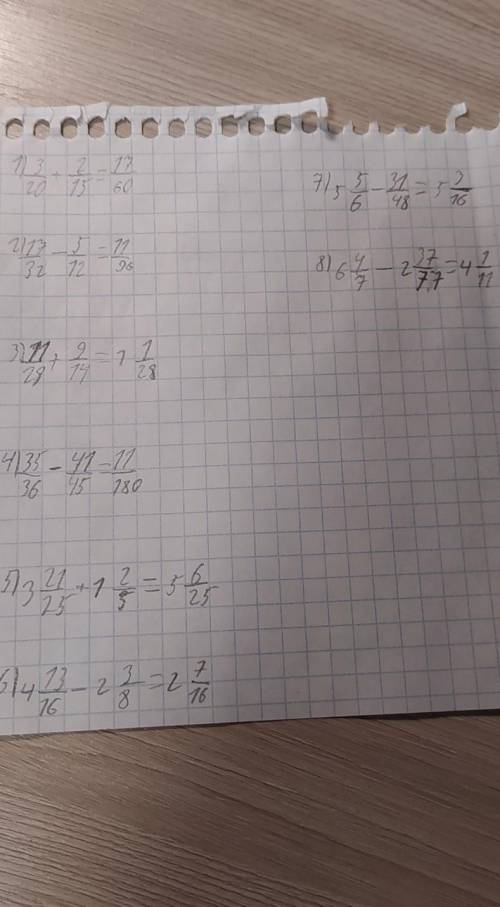 1) 3/20 + 2/15 = 17/60
2) 17/32 - 5/12 = 11/96
3) 11/28 + 9/14 = 1 1/28
4) 35/36 - 41/45 = 11/180
5) 3 21/25 + 1 2/5 = 5 6/25
6) 4 13/16 - 2 3/8 = 2 7/16
7) 5 5/6 - 31/48 = 5 3/16
8) 6 4/7 - 2 37/77 = 4 1/11